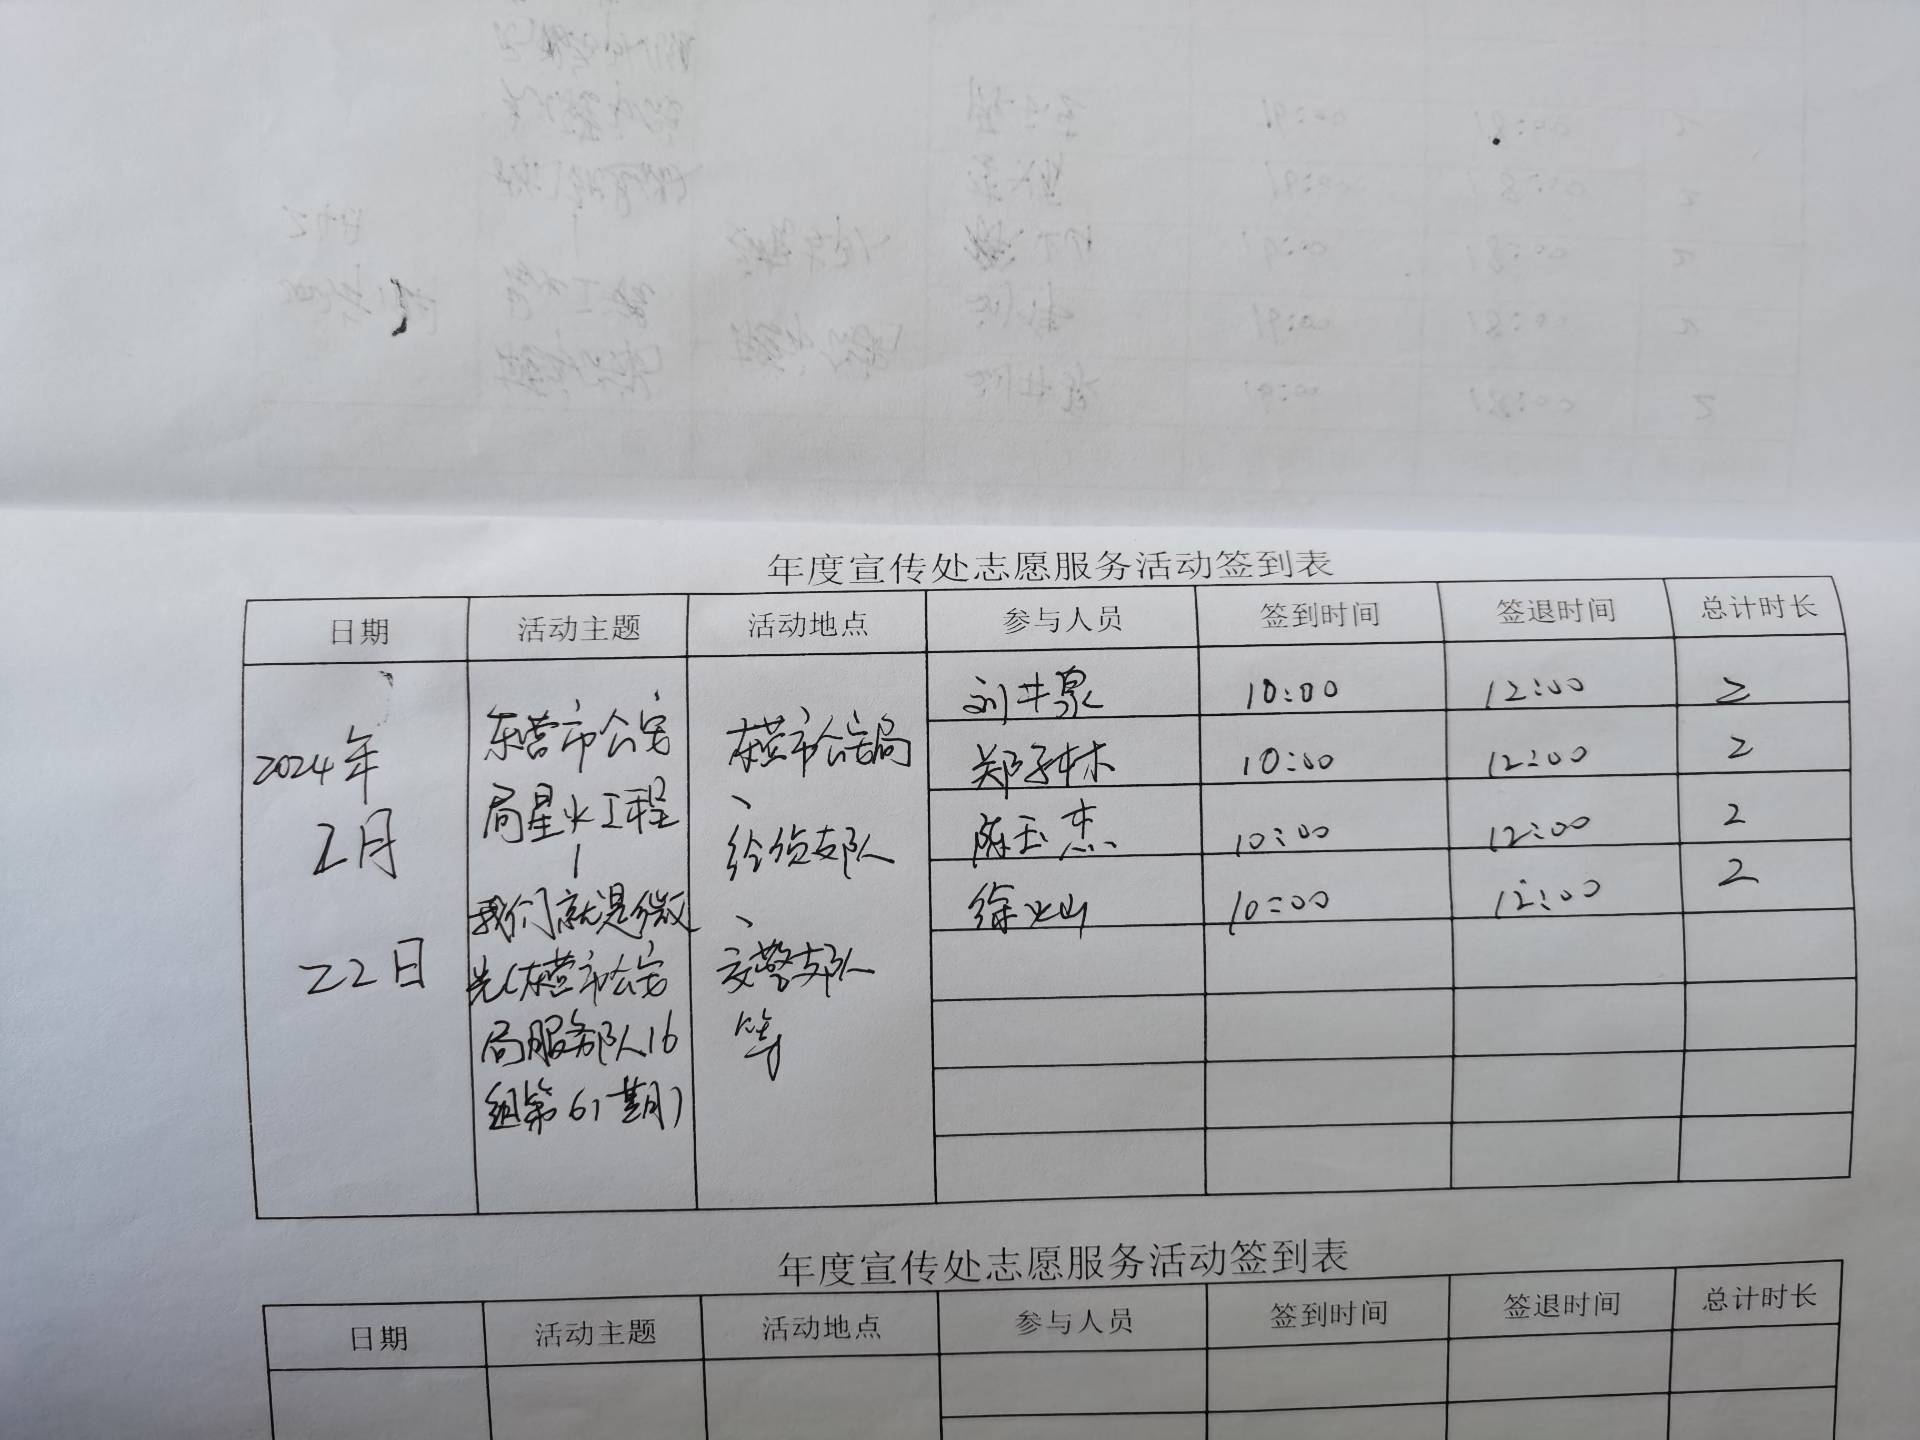 年度宣传处志愿服务活动签到表
日期 活动主题 活动地点 参与人员 签到时间 签退时间 总计时长
2024年
2月
22日
东营市公安
局星火工程
—
我们就是微
光(东营市公安
局服务队16
组第61期)
东营市公安局
、
经侦支队
、
交警支队
等
刘井泉 10:00 12:00 2
郑子林 10:00 12:00 2
陈玉杰 10:00 12:00 2
徐火山 10:00 12:00 2
年度宣传处志愿服务活动签到表
日期 活动主题 活动地点 参与人员 签到时间 签退时间 总计时长